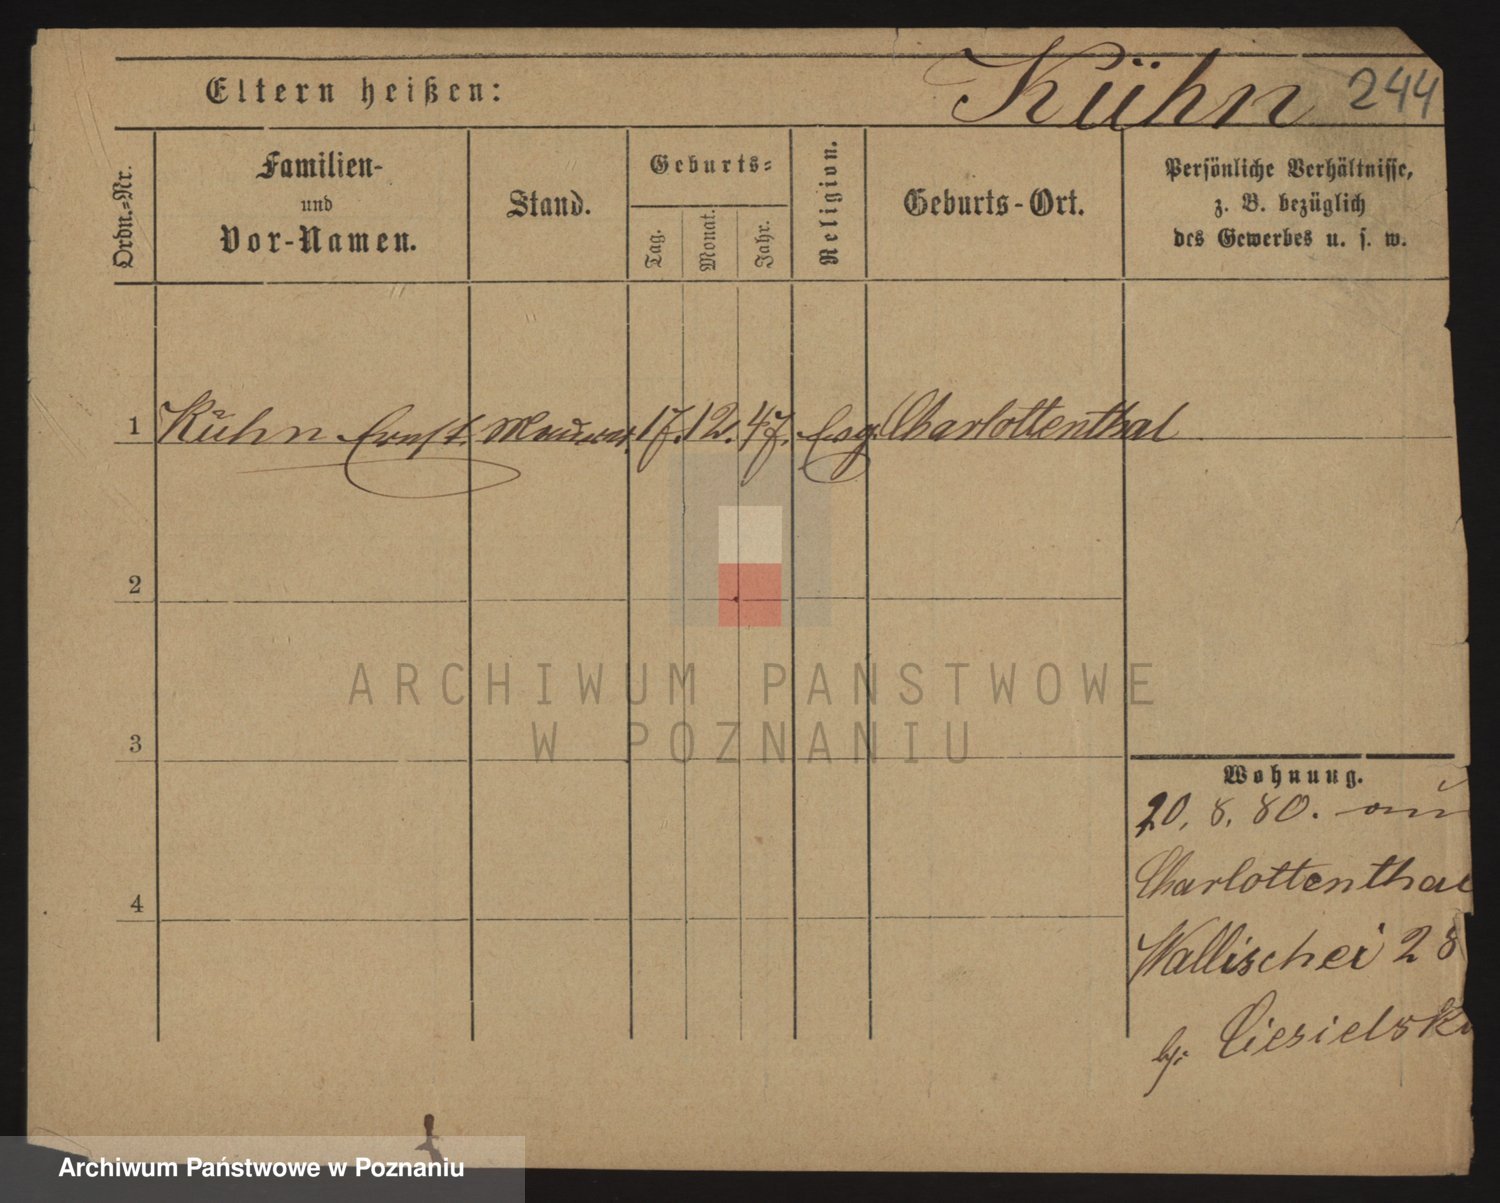 Eltern heißen: Kühn 244
Ordn.-Nr.
Familien-
und
Vor-Namen.
Stand.
Geburts-
Tag.
Monat.
Jahr.
Religion.
Geburts-Ort.
Persönliche Verhältnisse,
z. B. bezüglich
des Gewerbes u. s. w.
1 Kühn Ernst Maurer 17. 12. 47. Evg. Charlottenthal
2
3
4
Wohnung.
20. 8. 80. aus
Charlottenthal
Wallischei 28
bei Ciesielski
ARCHIWUM PAŃSTWOWE
W POZNANIU
Archiwum Państwowe w Poznaniu